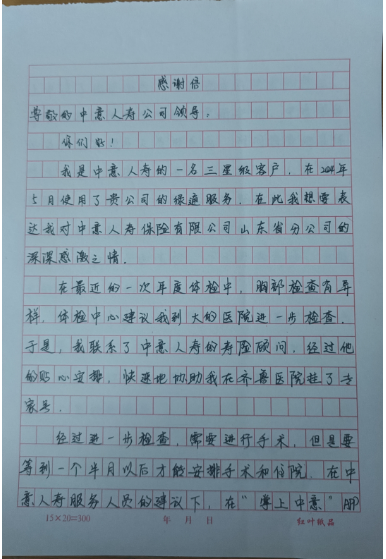 感谢信
尊敬的中意人寿公司领导:
你们好!
我是中意人寿的一名三星级客户,在2024年
5月使用了贵公司的绿通服务,在此我想要表
达我对中意人寿保险有限公司山东省分公司的
深深感激之情.
在最近的一次年度体检中,胸部检查有异
样,体检中心建议我到大的医院进一步检查.
于是,我联系了中意人寿的寿险顾问,经过他
的贴心安排,快速地协助我在齐鲁医院挂了专
家号.
经过进一步检查,需要进行手术,但是要
等到一个半月以后才能安排手术和住院,在中
意人寿服务人员的建议下,在“掌上中意”APP
15×20=300 年 月 日 红叶纸品